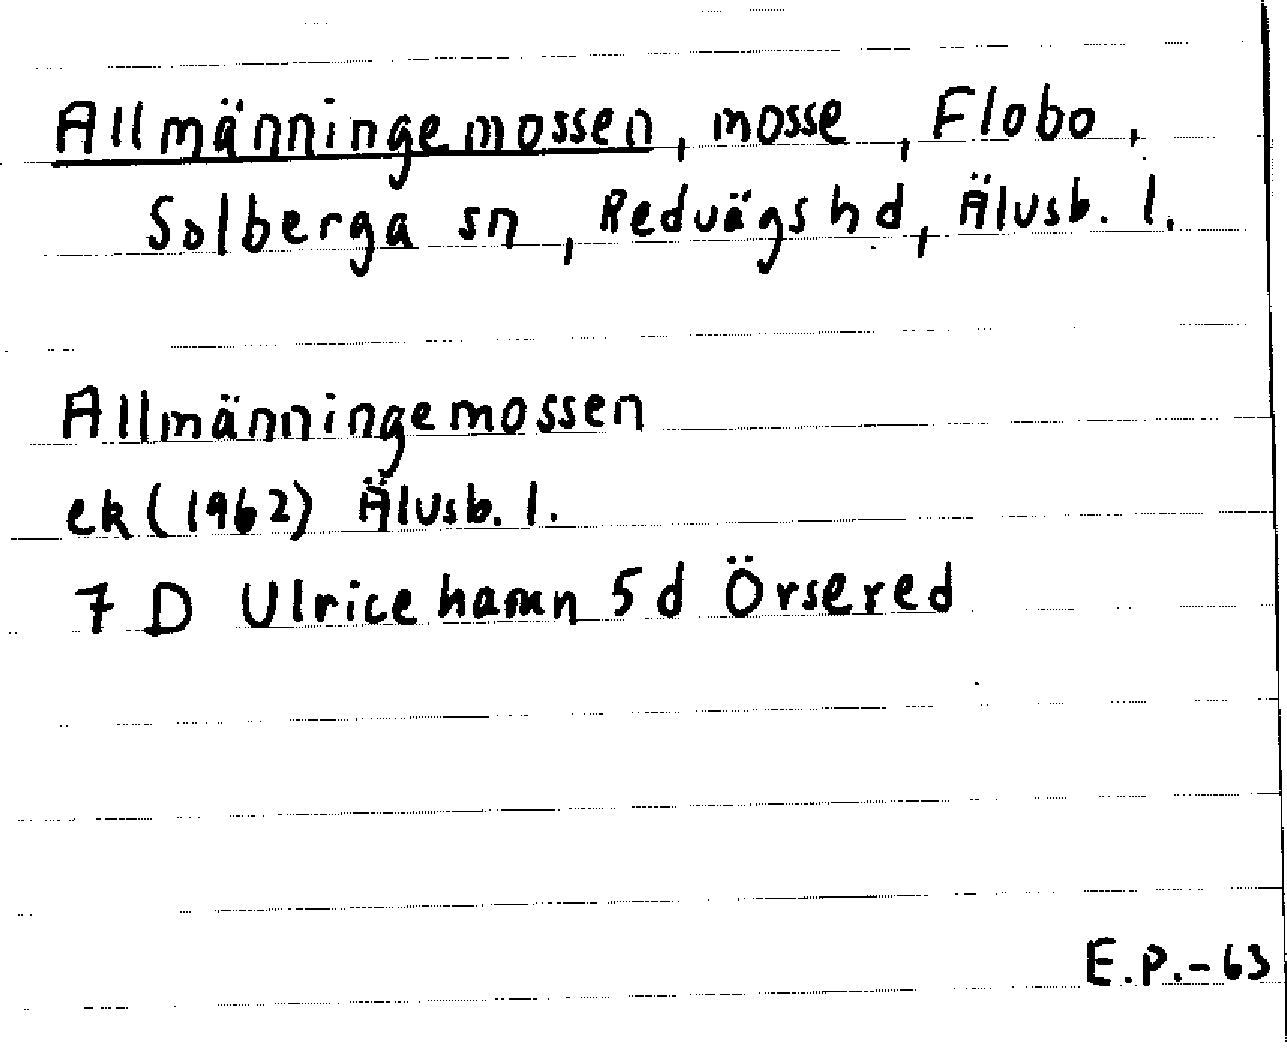 Allmänningemossen, mosse, Flobo,
Solberga sn, Redvägs hd, Älvsb. l.
Allmänningemossen
ek (1962) Älvsb. l.
7 D Ulricehamn 5 d Örsered
E.P.-63